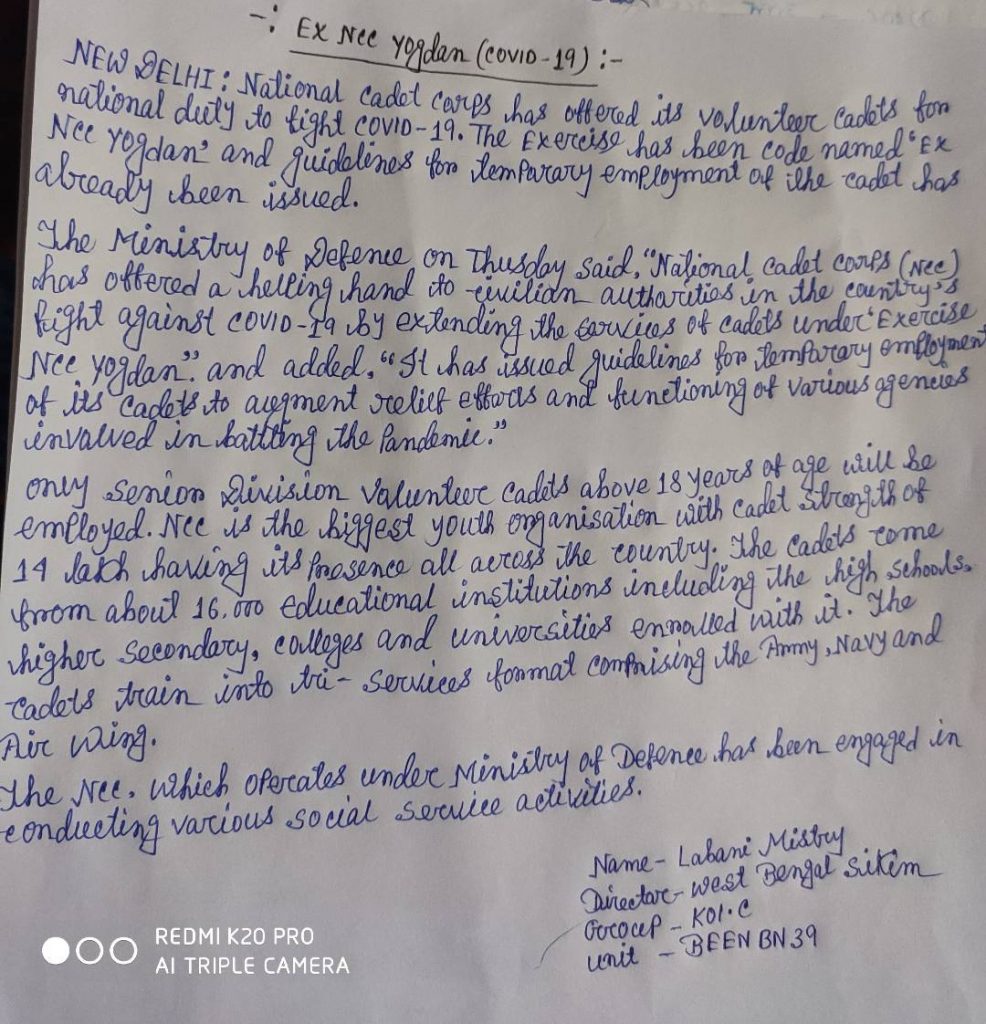 -: Ex Ncc Yogdan (COVID-19) :-
NEW DELHI: National cadet corps has offered its volunteer cadets for
national duty to fight COVID-19. The Exercise has been code named 'Ex
Ncc Yogdan' and guidelines for temparary employment of the cadet has
already been issued.
The Ministry of Defence on Thusday said, "National cadet corps (Ncc)
has offered a helling hand to civilian autharities in the country's
fight against COVID-19 by extending the services of cadets under 'Exercise
Ncc Yogdan". and added, "It has issued guidelines for temparary employment
of its cadets to augment relief efforts and functioning of various agencies
invalved in battling the Pandemic."
only senior Division Valunteer cadets above 18 years of age will be
employed. Ncc is the biggest youth organisation with cadet strength of
14 lakh having its Presence all across the country. The cadets come
from about 16,000 educational institutions including the high schools,
higher secondary, colleges and universities enrolled with it. The
cadets train into tri- services format comprising the Army, Navy and
Air Wing.
The Ncc. which operates under Ministry of Defence has been engaged in
conducting various social service activities.
Name- Labani Mistry
Director- West Bengal Sikim
Gorocep - KOl.C
unit - BEEN BN 39
REDMI K20 PRO
AI TRIPLE CAMERA